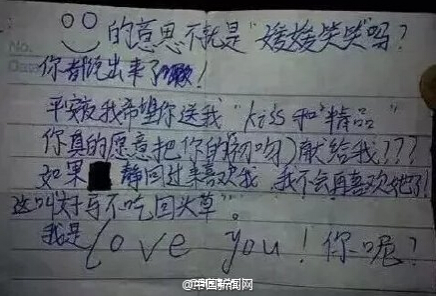 的意思不就是"媛媛笑哭"吗?
No.
你都说出来了
Date
平安夜我希望你送我"kiss和"精品"
你真的愿意把你的(初吻)献给我???
如果 静回过来喜欢我,我不会再喜欢她了!
这叫好马不吃回头草"。
我是 love you! 你呢?
@中国新闻网